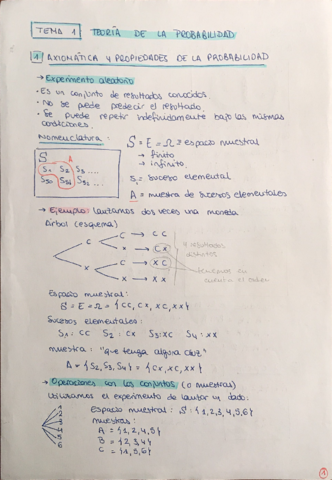 TEMA 1 TEORÍA DE LA PROBABILIDAD
1 AXIOMÁTICA Y PROPIEDADES DE LA PROBABILIDAD
→ Experimento aleatorio
· Es un conjunto de resultados conocidos
· No se puede predecir el resultado.
· Se puede repetir indefinidamente bajo las mismas
condiciones.
Nomenclatura:
S = E = Ω = espacio muestral
→ finito
→ infinito
S A
S1 S2 S3 ....
S20 S34 S31 ...
Si = suceso elemental
A = muestra de sucesos elementales
→ Ejemplo: lanzamos dos veces una moneda
Árbol (esquema)
C C → CC
x → Cx
x C → xC
x → xx
4 resultados
distintos
tenemos en
cuenta el orden
Espacio muestral:
B = E = Ω = {CC, Cx, xC, xx}
Sucesos elementales:
S1: CC S2: Cx S3: xC S4: xx
muestra: "que tenga alguna cruz"
A = {S2, S3, S4} = {Cx, xC, xx}
→ Operaciones con los conjuntos (o muestras)
Utilizamos el experimento de lanzar un dado:
1
2
3
4
5
6
espacio muestral: S: {1,2,3,4,5,6}
muestras:
A = {1,2,4,5}
B = {2,3,4}
C = {1,5,6}
1